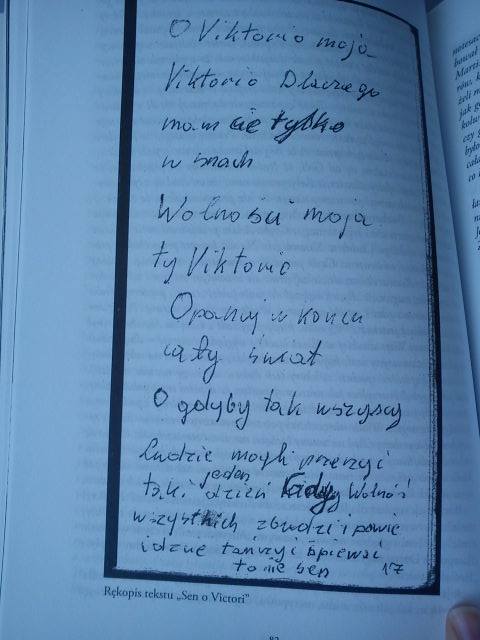 O Viktorio moja
Viktorio Dlaczego
mam cię tylko
w snach
Wolności moja
ty Viktorio
Opanuj w końcu
cały świat
O gdyby tak wszyscy
Ludzie mogli przeżyć
taki jeden dzień gdy Wolność
wszystkich zbudzi i powie
idźcie tańczyć śpiewać
to nie sen 17
Rękopis tekstu „Sen o Victori"